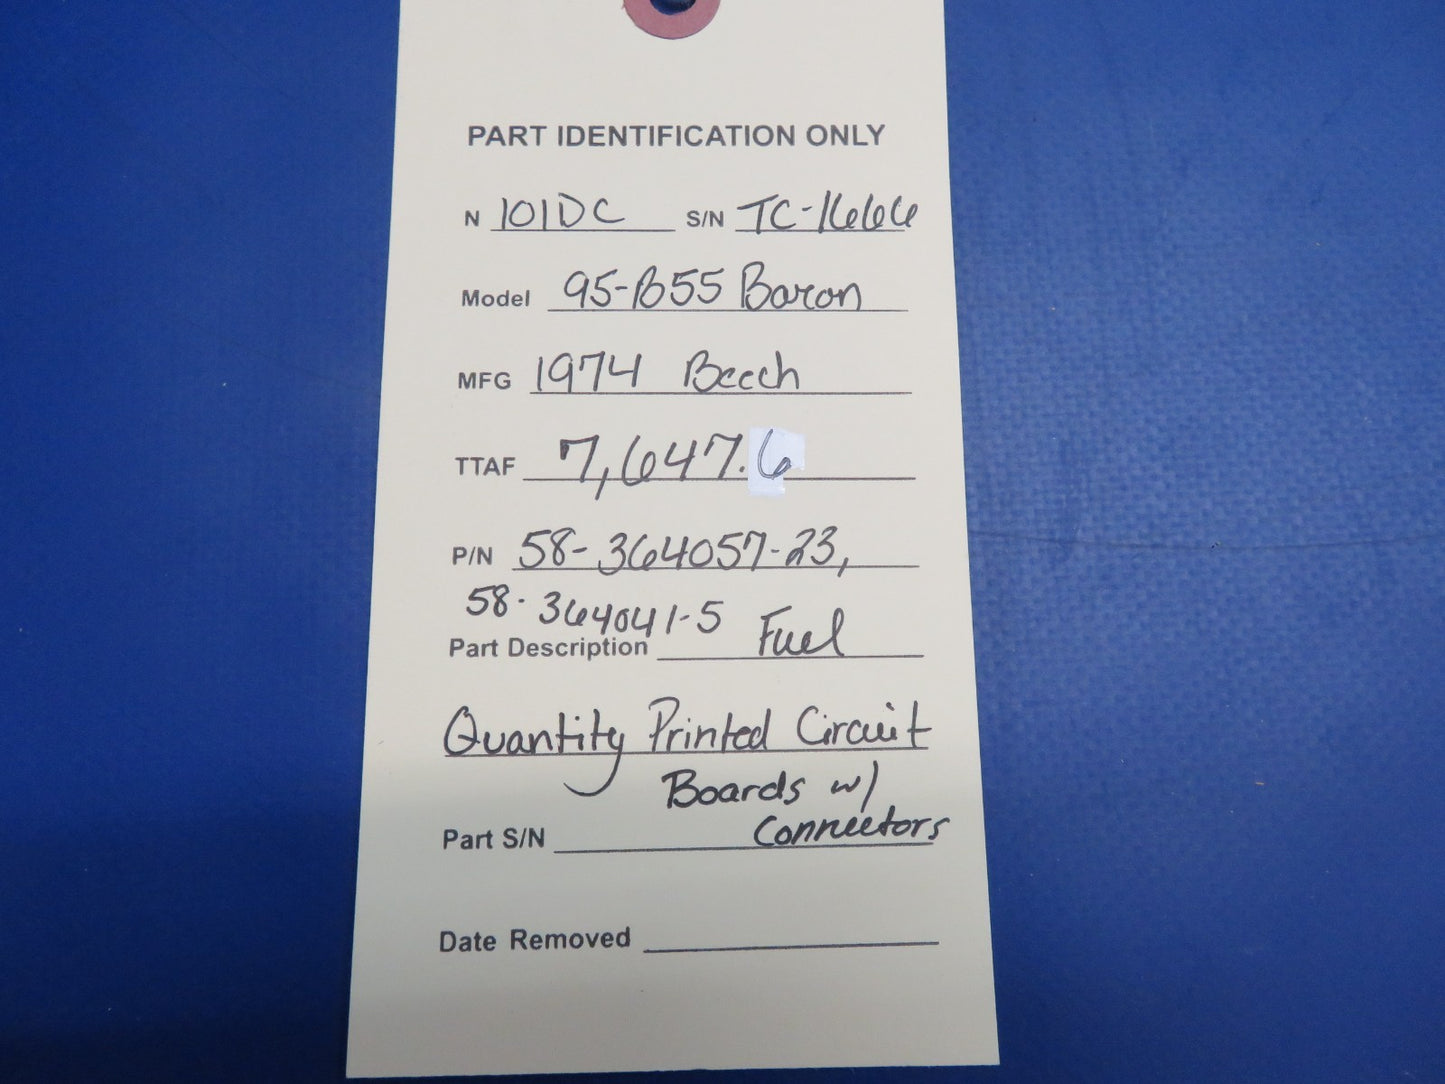 PART IDENTIFICATION ONLY
N 101DC S/N TC-1666
Model 95-B55 Baron
MFG 1974 Beech
TTAF 7,647.6
P/N 58-364057-23,
58-364041-5
Part Description Fuel
Quantity Printed Circuit
Boards w/
Connectors
Part S/N
Date Removed